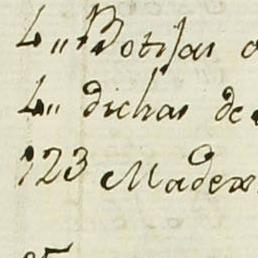 4,, Botijas
4,, dichas de
123 Madex